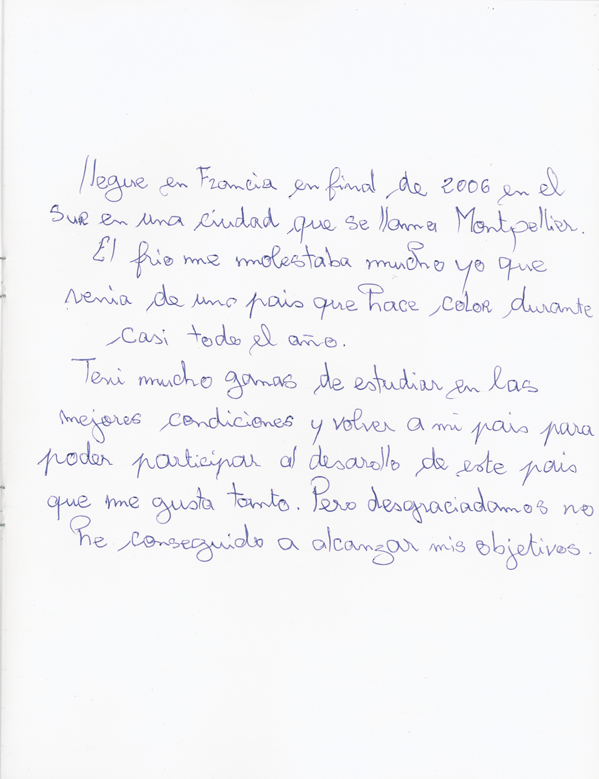 llegue en Francia en final de 2006 en el
sur en una ciudad que se llama Montpellier.
El frio me molestaba mucho yo que
venia de uno pais que hace color durante
casi todo el año.
Teni mucho ganas de estudiar en las
mejores condiciones y volver a mi pais para
poder participar al desarollo de este pais
que me gusta tanto. Pero desgraciadamos no
he conseguido a alcanzar mis objetivos.